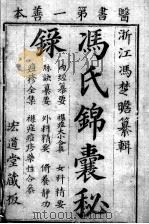 醫書第一善本
浙江馮楚瞻纂輯
馮氏錦囊秘
錄
内經纂要
雜症大小合參
脉訣纂要
女科精要
外科精要
修養靜功
痘疹全集
雜症痘疹藥性合參
宏道堂藏板